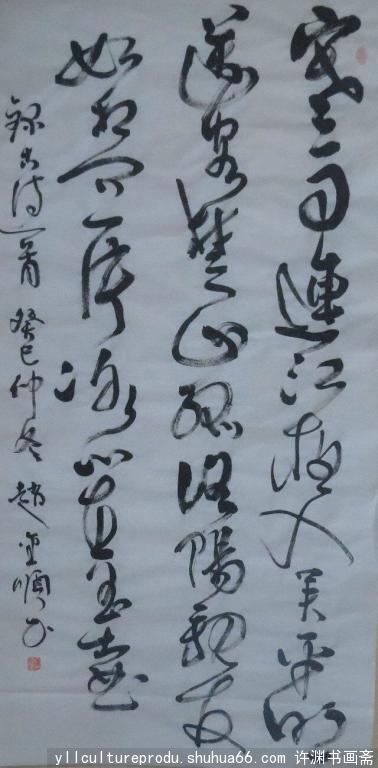 寒雨連江夜入吴平明
送客楚山孤洛陽親友
如相问一片冰心在玉壶
録古诗一首 癸巳仲冬 趙金順书
yllcultureprodu.shuhua66.com 许渊书画斋